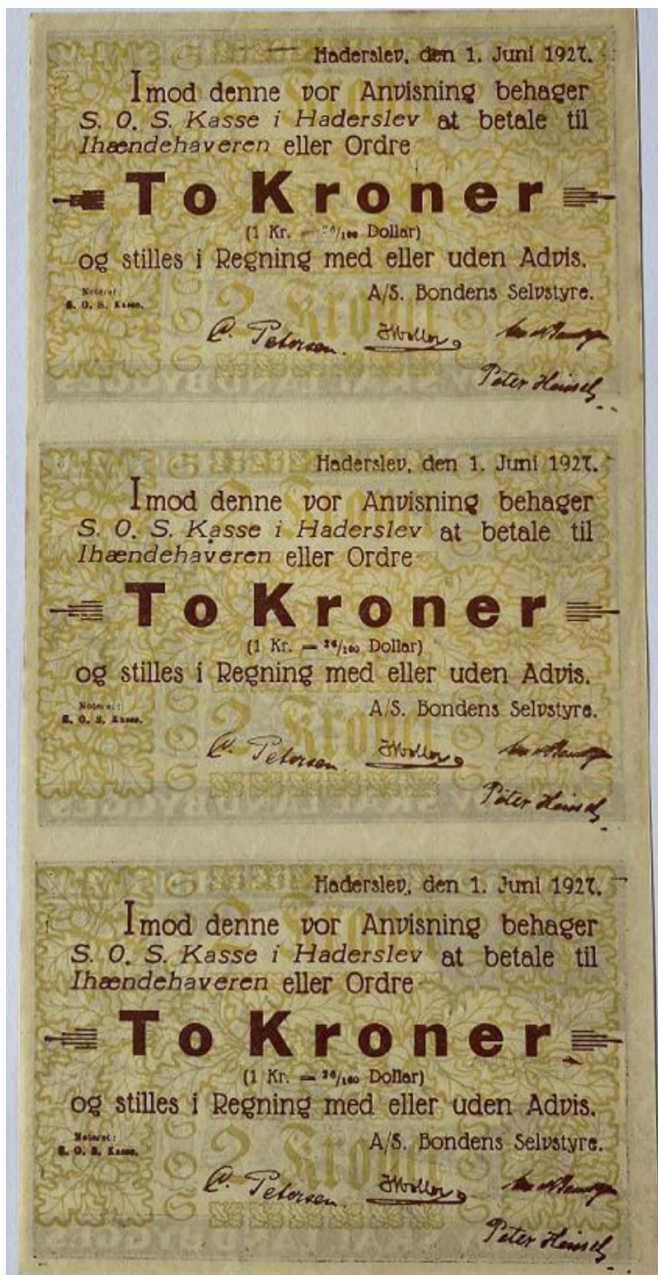 Haderslev, den 1. Juni 1927.
Imod denne vor Anvisning behager
S. O. S. Kasse i Haderslev at betale til
Ihændehaveren eller Ordre
To Kroner
(1 Kr. = 26/100 Dollar)
og stilles i Regning med eller uden Advis.
Noteret:
S. O. S. Kasse.
A/S. Bondens Selvstyre.
C. Petersen.
Peter Heinsel
2 Kroner
Haderslev, den 1. Juni 1927.
Imod denne vor Anvisning behager
S. O. S. Kasse i Haderslev at betale til
Ihændehaveren eller Ordre
To Kroner
(1 Kr. = 26/100 Dollar)
og stilles i Regning med eller uden Advis.
Noteret:
S. O. S. Kasse.
A/S. Bondens Selvstyre.
C. Petersen.
Peter Heinsel
2 Kroner
Haderslev, den 1. Juni 1927.
Imod denne vor Anvisning behager
S. O. S. Kasse i Haderslev at betale til
Ihændehaveren eller Ordre
To Kroner
(1 Kr. = 26/100 Dollar)
og stilles i Regning med eller uden Advis.
Noteret:
S. O. S. Kasse.
A/S. Bondens Selvstyre.
C. Petersen.
Peter Heinsel
2 Kroner